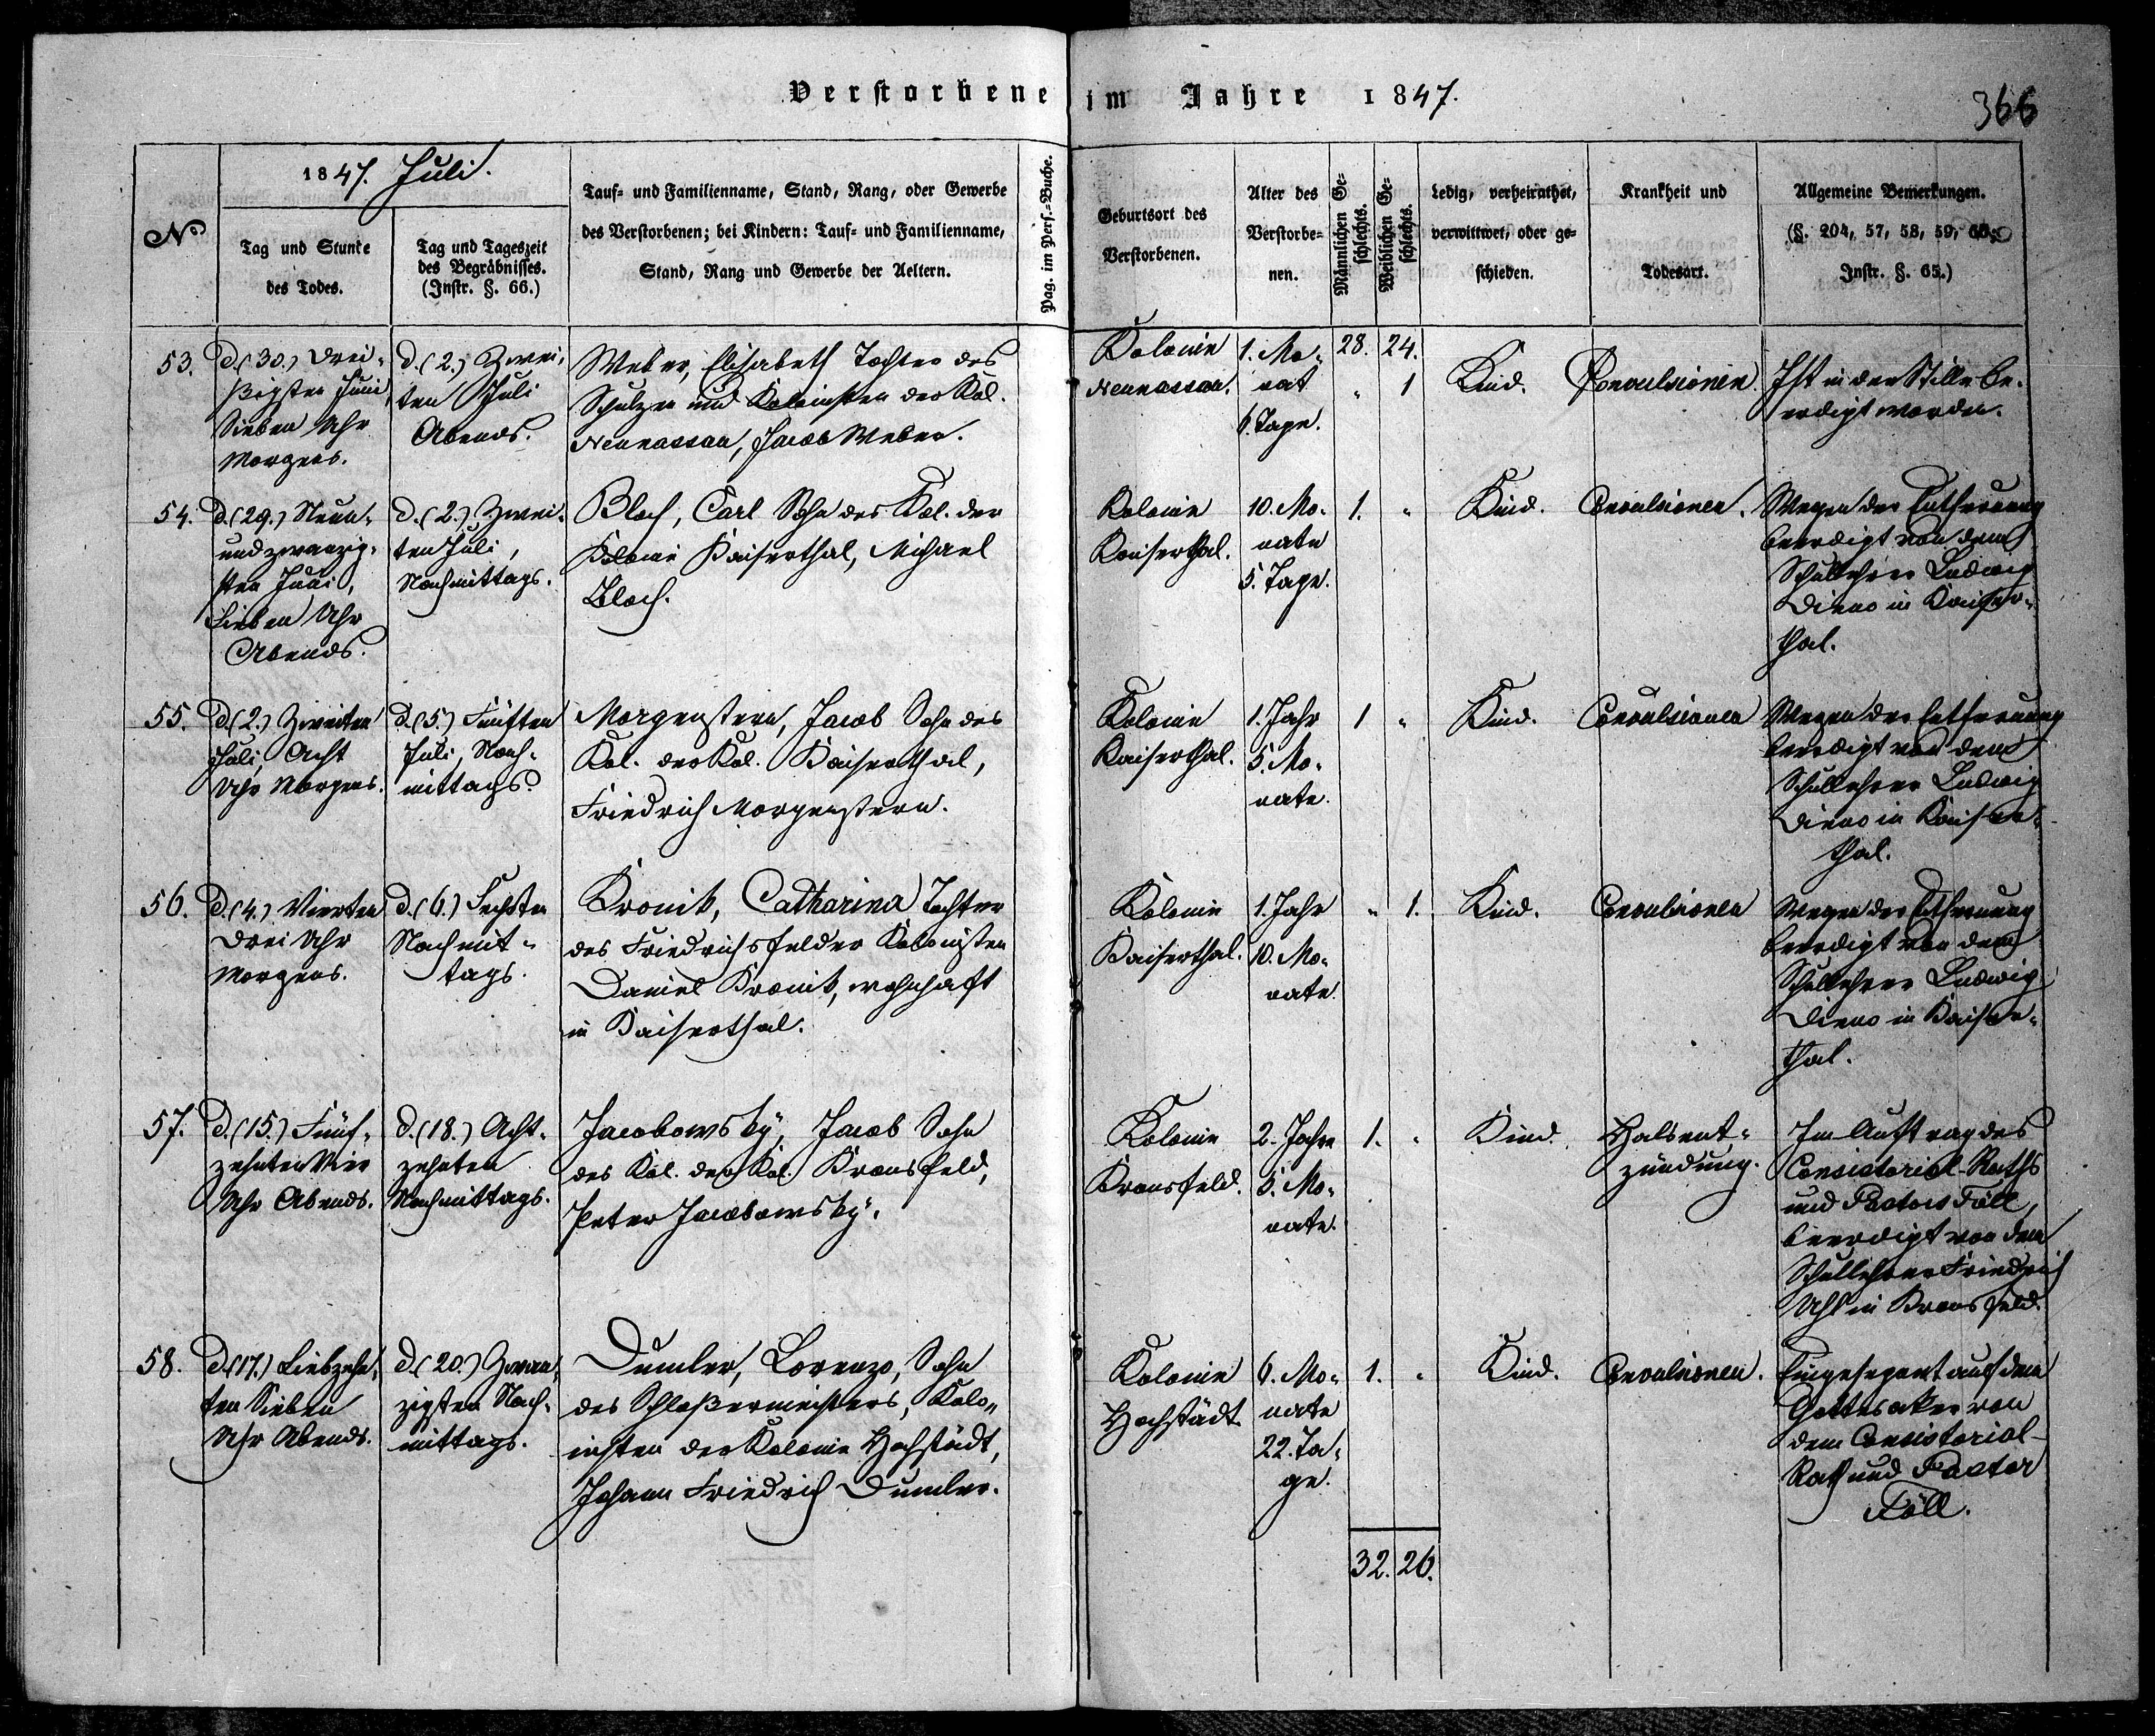 Verstorbene im Jahre 1847.
366
No
1847. Juli.
Tag und Stunde
des Todes.
Tag und Tageszeit
des Begräbnisses.
(Instr. §. 66.)
Tauf- und Familienname, Stand, Rang, oder Gewerbe
des Verstorbenen; bei Kindern: Tauf- und Familienname,
Stand, Rang und Gewerbe der Aeltern.
Pag. im Pers.-Buche.
Geburtsort des
Verstorbenen.
Alter des
Verstorbe-
nen.
Männlichen Ge-
schlechts.
Weiblichen Ge-
schlechts.
Ledig, verheirathet,
verwittwet, oder ge-
schieden.
Krankheit und
Todesart.
Allgemeine Bemerkungen.
(§. 204, 57, 58, 59, 60,
Instr. §. 65.)
53.
d. (30.) Drei-
ßigsten Juni,
Sieben Uhr
Morgens.
d. (2.) Zwei-
ten Juli
Abends.
Weber, Elisabeth Tochter des
Schulzen und Kolonisten der Kol.
Neunassau, Jacob Weber.
Kolonie
Neunassau.
1. Mo-
nat
6. Tage.
28. 24.
" 1
Kind.
Convulsionen.
Ist in der Stille be-
erdigt worden.
54.
d. (29.) Neun-
undzwanzig-
sten Juni,
Sieben Uhr
Abends.
d. (2.) Zwei-
ten Juli,
Nachmittags.
Bloch, Carl Sohn des Kol. der
Kolonie Kaiserthal, Michael
Bloch.
Kolonie
Kaiserthal.
10. Mo-
nate
5. Tage.
1. "
Kind.
Convulsionen.
Wegen der Entfernung
beerdigt von dem
Schullehrer Ludwig
Dieno in Kaiser-
thal.
55.
d. (2.) Zweiten
Juli, Acht
Uhr Morgens.
d. (5.) Fünften
Juli, Nach-
mittags.
Morgenstern, Jacob Sohn des
Kol. der Kol. Kaiserthal,
Friedrich Morgenstern.
Kolonie
Kaiserthal.
1. Jahr
5. Mo-
nate.
1 "
Kind.
Convulsionen
Wegen der Entfernung
beerdigt von dem
Schullehrer Ludwig
Dieno in Kaiser-
thal.
56.
d. (4.) Vierten
Drei Uhr
Morgens.
d. (6.) Sechsten
Nachmit-
tags.
Kronik, Catharina Tochter
des Friedrichsfelder Kolonisten
Daniel Kronik, wohnhaft
in Kaiserthal.
Kolonie
Kaiserthal.
1. Jahr
10. Mo-
nate.
" 1.
Kind.
Convulsionen
Wegen der Entfernung
beerdigt von dem
Schullehrer Ludwig
Dieno in Kaiser-
thal.
57.
d. (15.) Fünf-
zehnten Vier
Uhr Abends.
d. (18.) Acht-
zehnten
Nachmittags.
Jacobowsky, Jacob Sohn
des Kol. der Kol. Kronsfeld,
Peter Jacobowsky.
Kolonie
Kronsfeld.
2. Jahre
5. Mo-
nate.
1. "
Kind.
Halsent-
zündung.
Im Auftrag des
Consistorial-Raths
und Pastors Föll,
beerdigt von dem
Schullehrer Friedrich
Uhl in Kronsfeld.
58.
d. (17.) Siebzehn-
ten Sieben
Uhr Abends.
d. (20.) Zwan-
zigsten Nach-
mittags.
Dumler, Lorenzo, Sohn
des Schloßermeisters, Kolo-
nisten der Kolonie Hochstädt,
Johann Friedrich Dumler.
Kolonie
Hochstädt.
6. Mo-
nate
22. Ta-
ge.
1. "
Kind.
Convulsionen.
Eingesegnet auf dem
Gottesaker von
dem Consistorial-
Rath und Pastor
Föll.
32. 26.